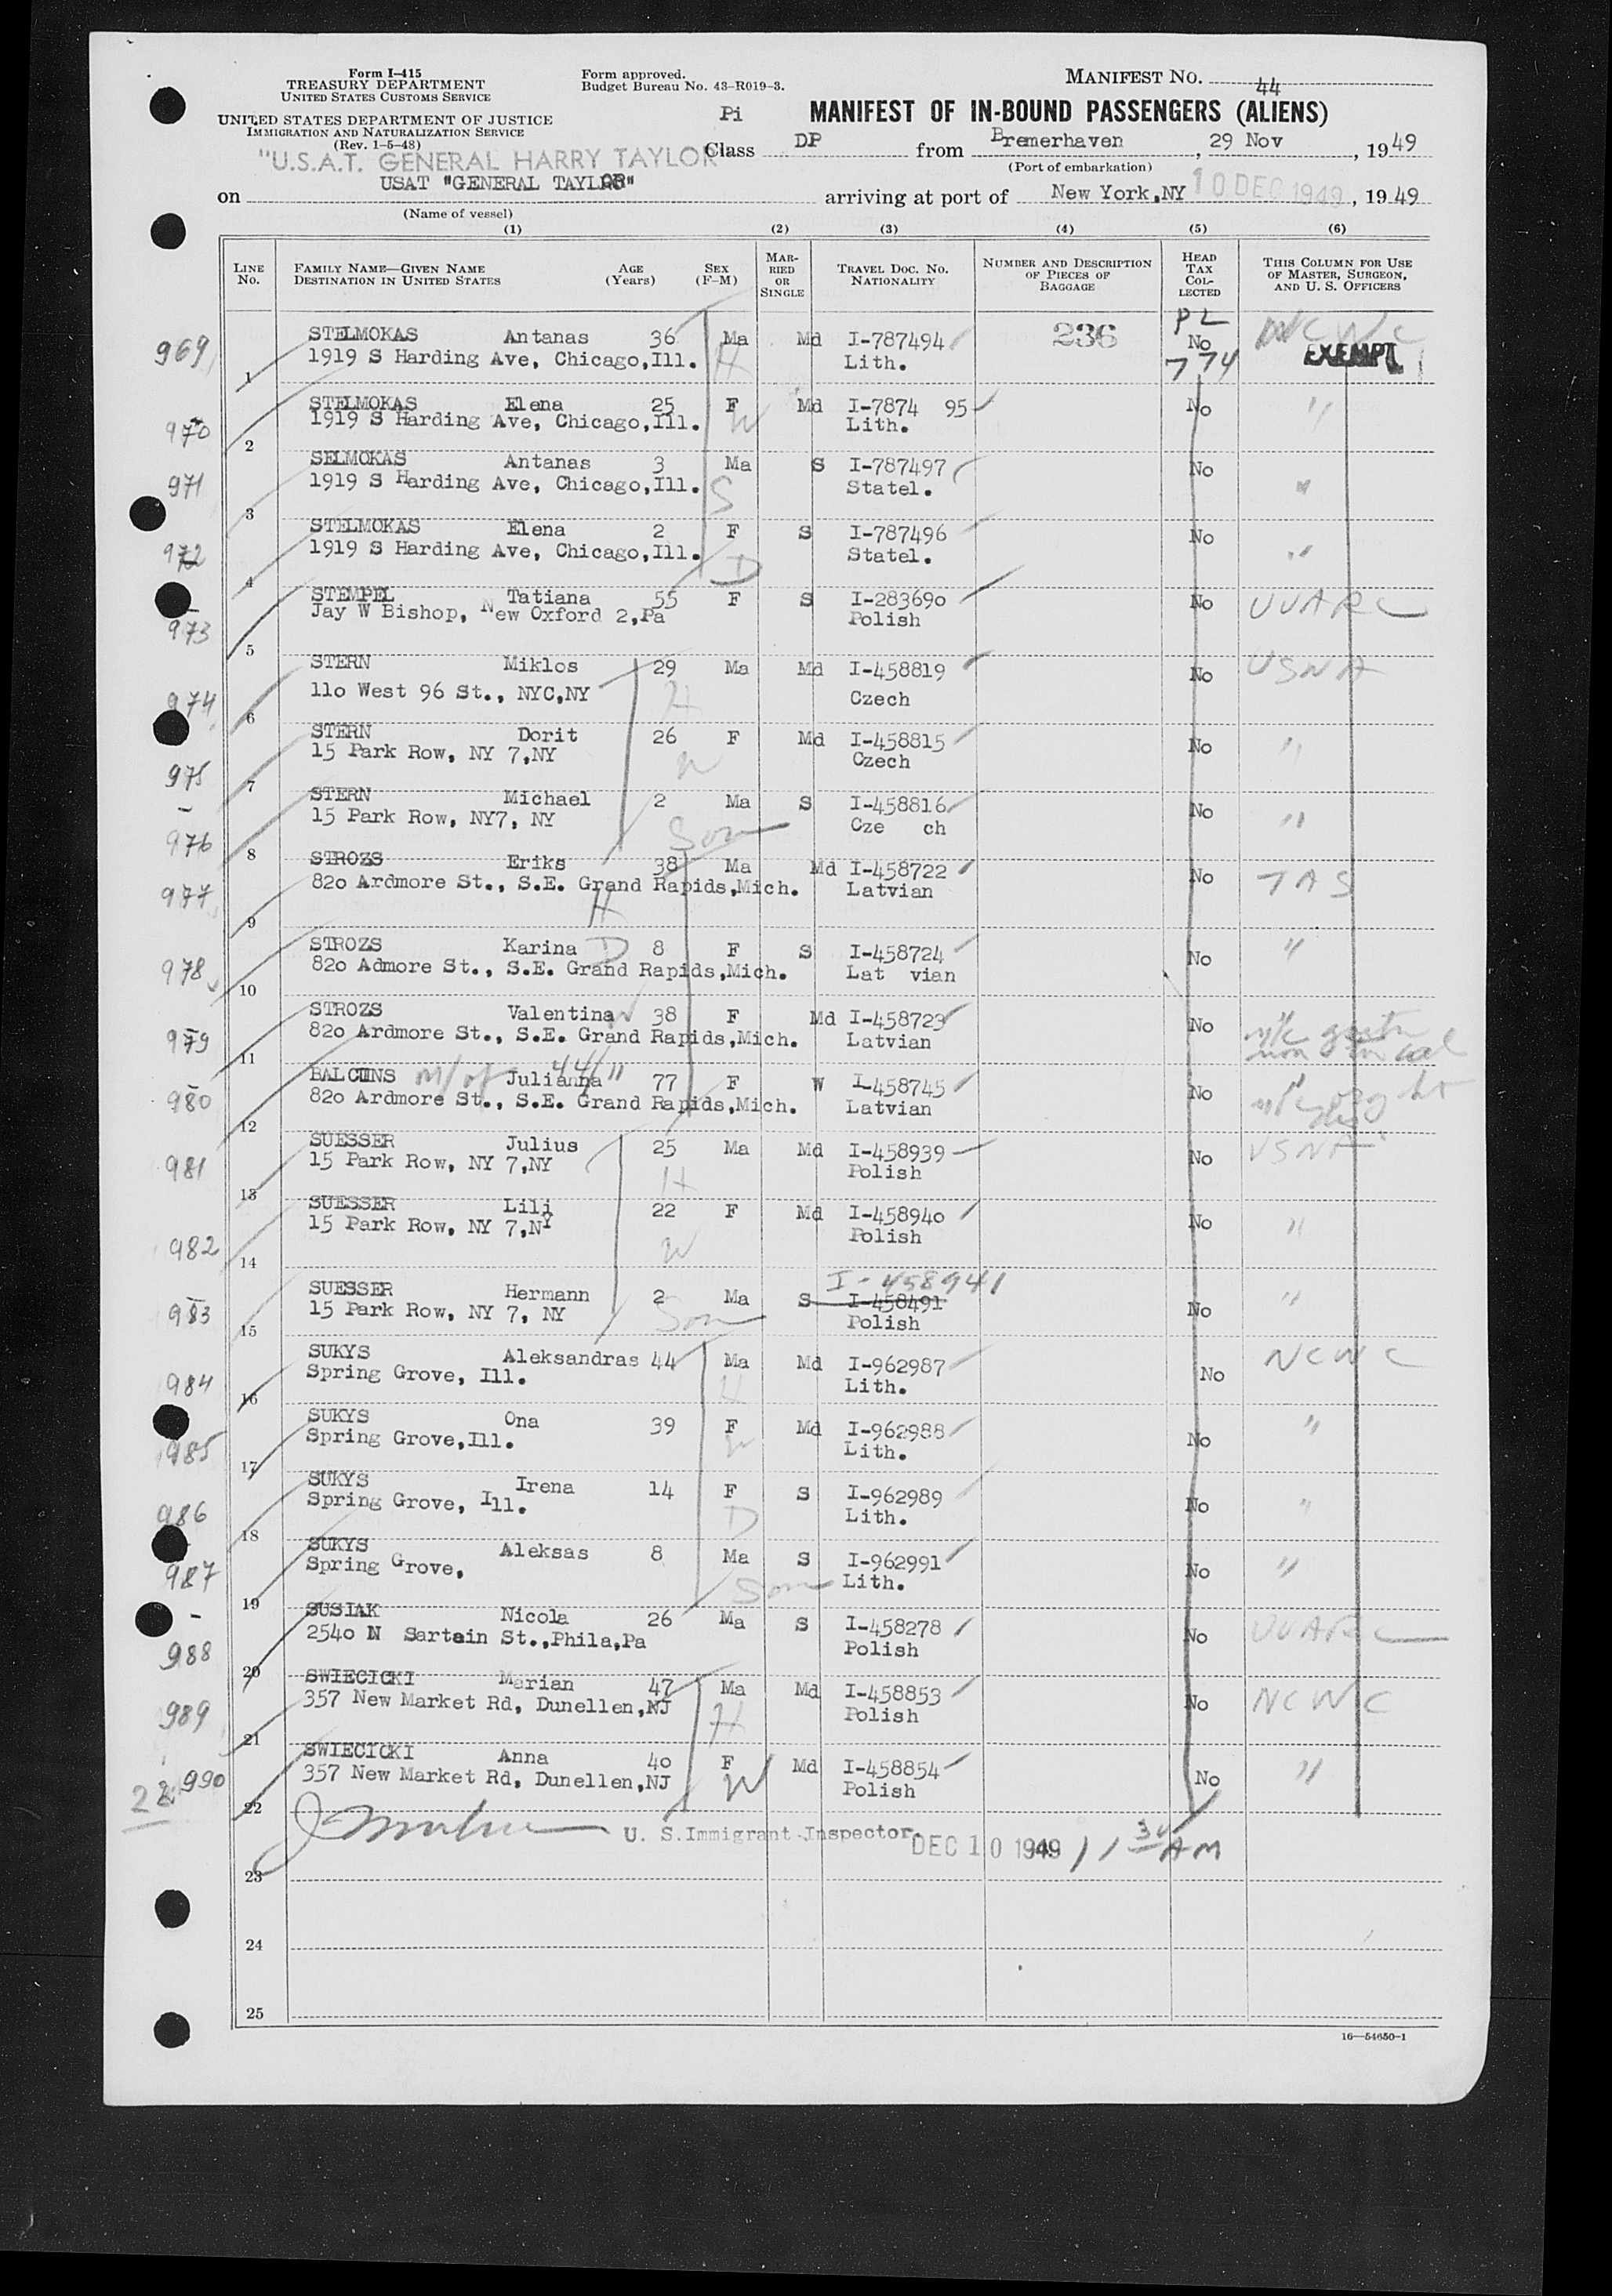 Form I-415
TREASURY DEPARTMENT
UNITED STATES CUSTOMS SERVICE
UNITED STATES DEPARTMENT OF JUSTICE
IMMIGRATION AND NATURALIZATION SERVICE
(Rev. 1-5-48)
Form approved.
Budget Bureau No. 43-R019-3.
MANIFEST NO. 44
Pi
MANIFEST OF IN-BOUND PASSENGERS (ALIENS)
"U.S.A.T. GENERAL HARRY TAYLOR
Class DP from Bremerhaven, 29 Nov, 1949
(Port of embarkation)
on USAT "GENERAL TAYLOR" arriving at port of New York,NY 10 DEC 1949, 1949
(Name of vessel)
(1) (2) (3) (4) (5) (6)
LINE No. FAMILY NAME—GIVEN NAME DESTINATION IN UNITED STATES AGE (Years) SEX (F-M) MARRIED OR SINGLE TRAVEL DOC. NO. NATIONALITY NUMBER AND DESCRIPTION OF PIECES OF BAGGAGE HEAD TAX COLLECTED THIS COLUMN FOR USE OF MASTER, SURGEON, AND U. S. OFFICERS
969 STELMOKAS Antanas 36 Ma Md I-787494 236 PL No 774 NCWC EXEMPT
1 1919 S Harding Ave, Chicago,Ill. H Lith.
970 STELMOKAS Elena 25 F Md I-7874 95 No "
2 1919 S Harding Ave, Chicago,Ill. W Lith.
971 SELMOKAS Antanas 3 Ma S I-787497 No "
3 1919 S Harding Ave, Chicago,Ill. S Statel.
972 STELMOKAS Elena 2 F S I-787496 No "
4 1919 S Harding Ave, Chicago,Ill. D Statel.
973 STEMPEL Tatiana 55 F S I-283690 No UUARC
5 Jay W Bishop, New Oxford 2,Pa Polish
974 STERN Miklos 29 Ma Md I-458819 No USNA
6 110 West 96 St., NYC,NY H Czech
975 STERN Dorit 26 F Md I-458815 No "
7 15 Park Row, NY 7,NY W Czech
976 STERN Michael 2 Ma S I-458816 No "
8 15 Park Row, NY7, NY Son Cze ch
977 STROZS Eriks 38 Ma Md I-458722 No TAS
9 820 Ardmore St., S.E. Grand Rapids,Mich. H Latvian
978 STROZS Karina D 8 F S I-458724 No "
10 820 Admore St., S.E. Grand Rapids,Mich. Lat vian
979 STROZS Valentina W 38 F Md I-458723 No
11 820 Ardmore St., S.E. Grand Rapids,Mich. Latvian
980 BALCUNS m/of 44/11 Julianna 77 F W I-458745 No
12 820 Ardmore St., S.E. Grand Rapids,Mich. Latvian
981 SUESSER Julius 25 Ma Md I-458939 No USNA
13 15 Park Row, NY 7,NY H Polish
982 SUESSER Lili 22 F Md I-458940 No "
14 15 Park Row, NY 7,NY W Polish
I-458941
983 SUESSER Hermann 2 Ma S I-458491 No "
15 15 Park Row, NY 7, NY Son Polish
984 SUKYS Aleksandras 44 Ma Md I-962987 No NCWC
16 Spring Grove, Ill. H Lith.
985 SUKYS Ona 39 F Md I-962988 No "
17 Spring Grove,Ill. W Lith.
986 SUKYS Irena 14 F S I-962989 No "
18 Spring Grove, Ill. D Lith.
987 SUKYS Aleksas 8 Ma S I-962991 No "
19 Spring Grove, Son Lith.
988 SUSIAK Nicola 26 Ma S I-458278 No UUARC
20 2540 N Sartain St.,Phila,Pa Polish
989 SWIECICKI Marian 47 Ma Md I-458853 No NCWC
21 357 New Market Rd, Dunellen,NJ H Polish
990 SWIECICKI Anna 40 F Md I-458854 No "
22 22 357 New Market Rd, Dunellen,NJ W Polish
U. S. Immigrant Inspector. DEC 10 1949 11 30 AM
23
24
25
16—54650-1